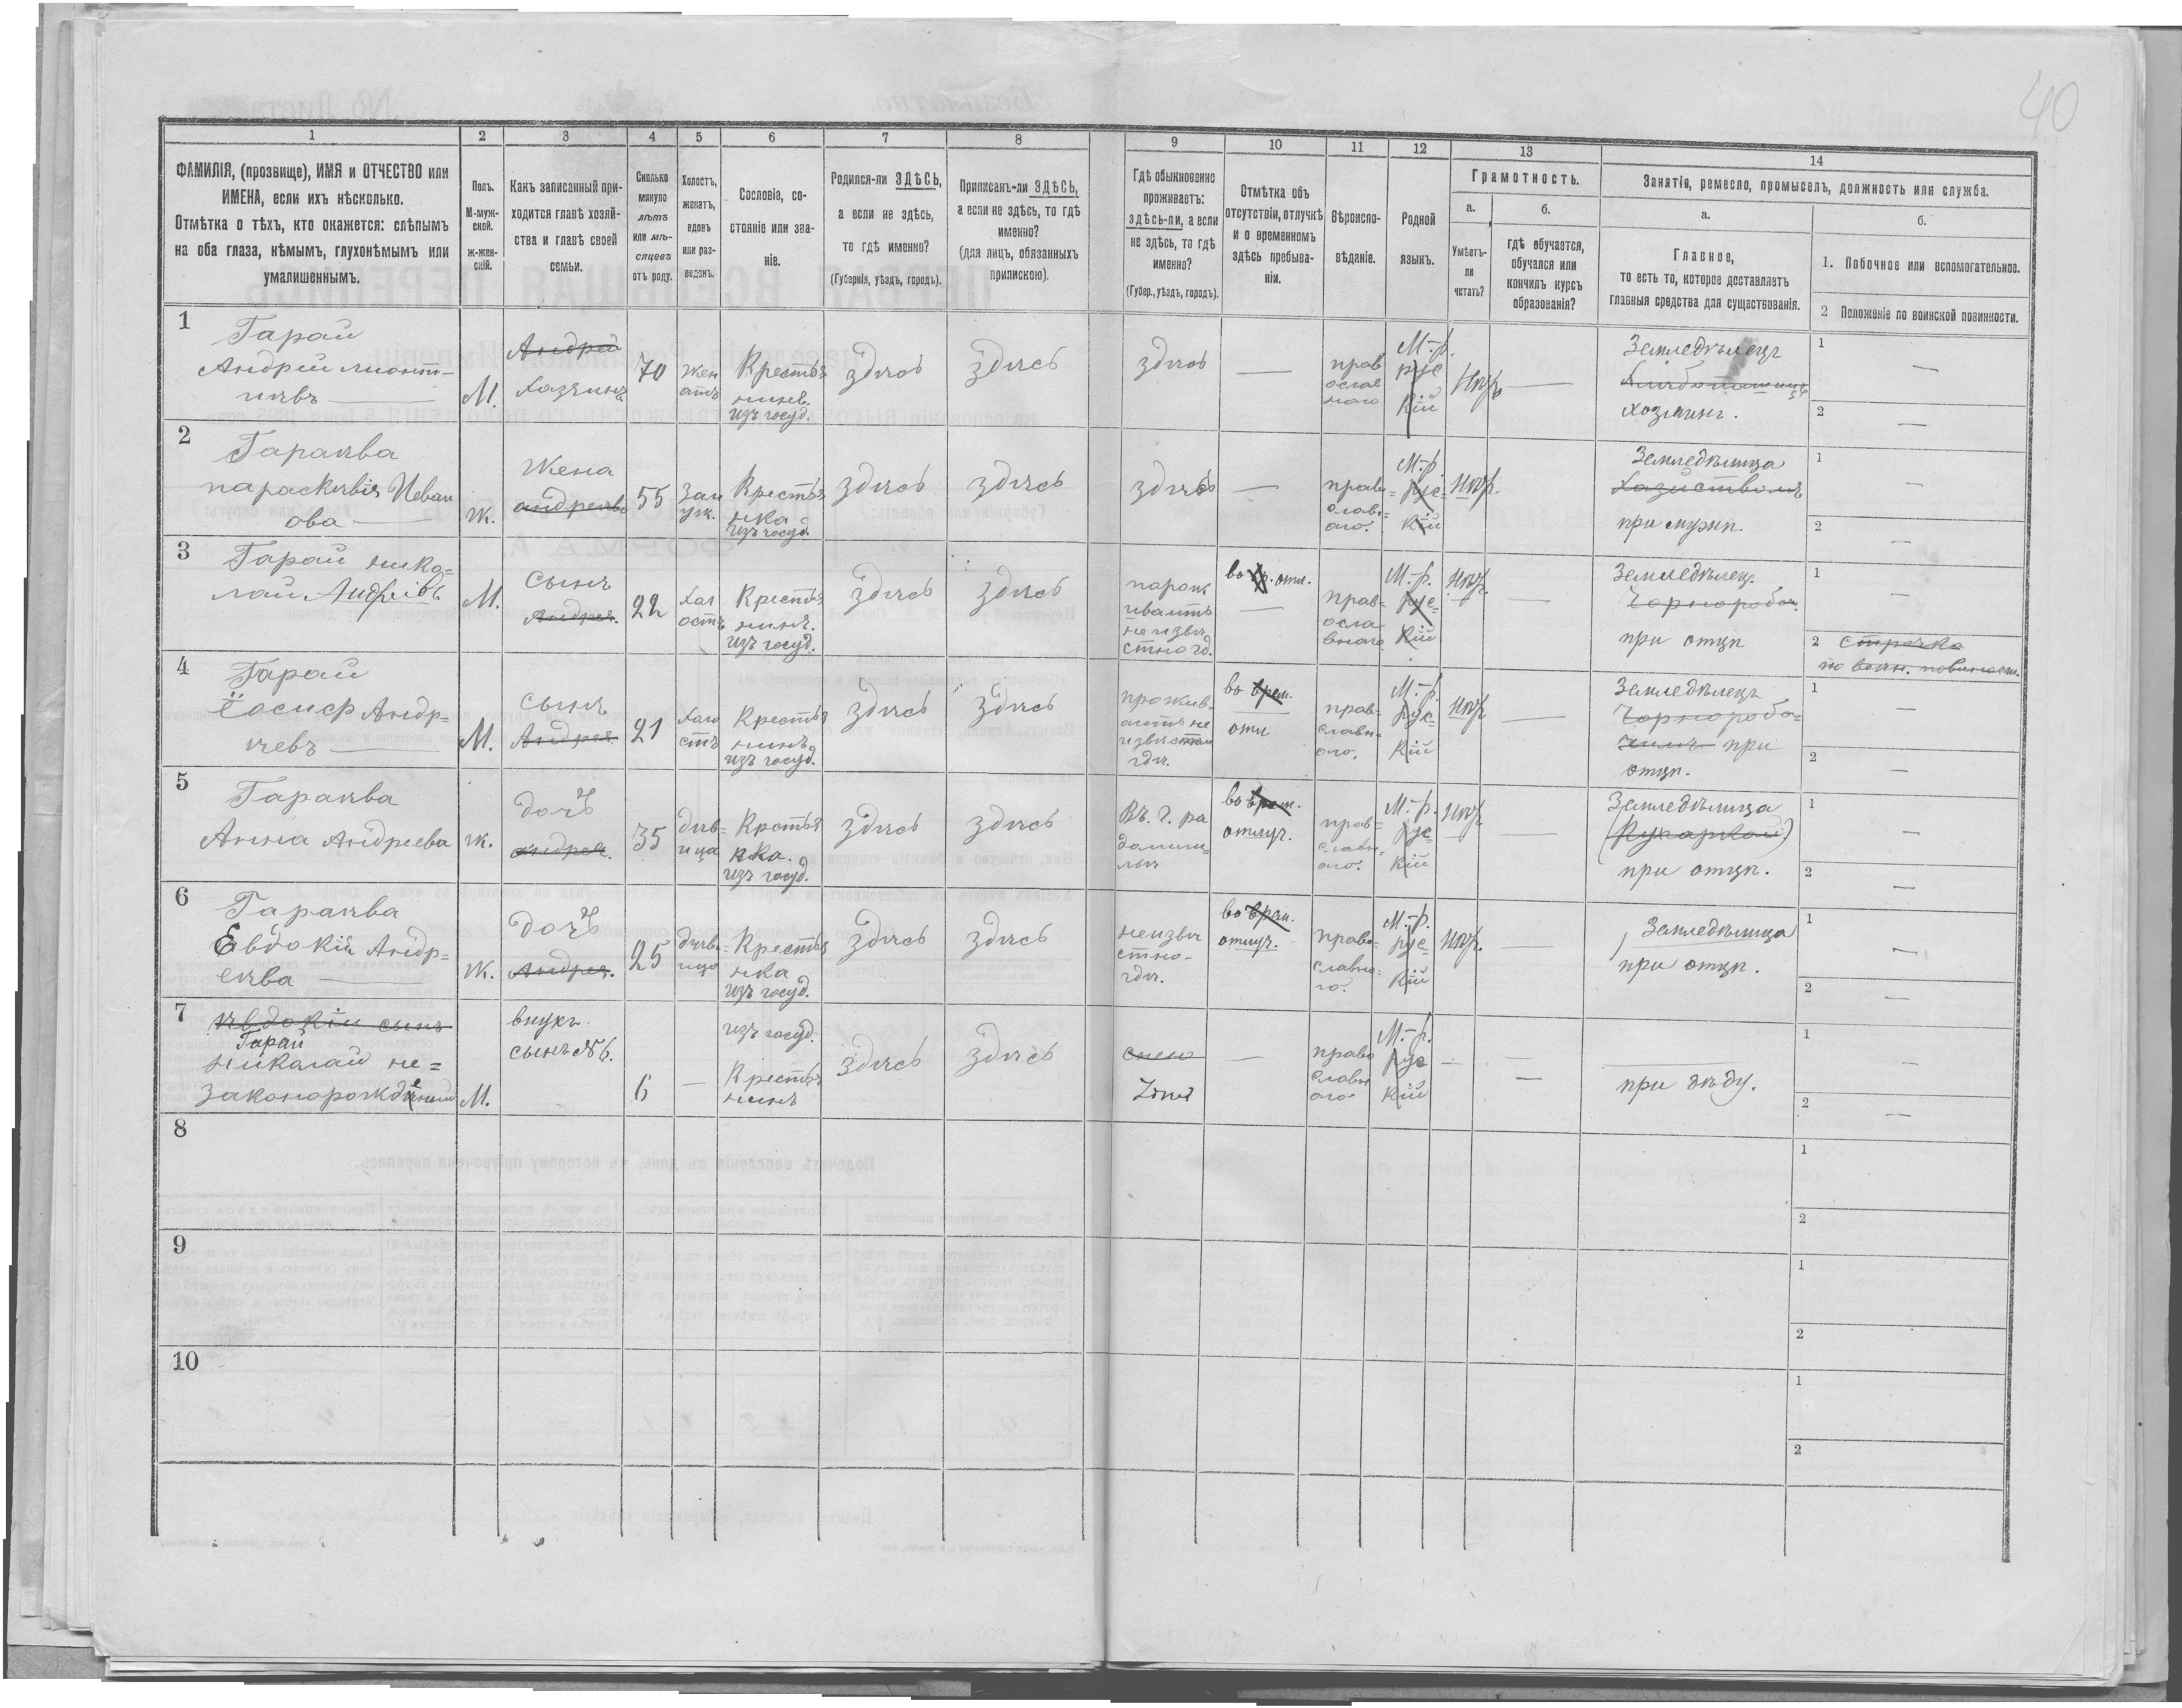 40
1 2 3 4 5 6 7 8 9 10 11 12 13 14
ФАМИЛІЯ, (прозвище), ИМЯ и ОТЧЕСТВО или
ИМЕНА, если ихъ нѣсколько.
Отмѣтка о тѣхъ, кто окажется: слѣпымъ
на оба глаза, нѣмымъ, глухонѣмымъ или
умалишеннымъ.
Полъ.
М-муж-
ской.
ж-жен-
скій.
Какъ записанный при-
ходится главѣ хозяй-
ства и главѣ своей
семьи.
Сколько
минуло
лѣтъ
или мѣ-
сяцевъ
отъ роду.
Холостъ,
женатъ,
вдовъ
или раз-
веденъ.
Сословіе, со-
стояніе или зва-
ніе.
Родился-ли ЗДѢСЬ,
а если не здѣсь,
то гдѣ именно?
(Губернія, уѣздъ, городъ).
Приписанъ-ли ЗДѢСЬ,
а если не здѣсь, то гдѣ
именно?
(для лицъ, обязанныхъ
припискою).
Гдѣ обыкновенно
проживаетъ:
здѣсь-ли, а если
не здѣсь, то гдѣ
именно?
(Губер., уѣздъ, городъ).
Отмѣтка объ
отсутствіи, отлучкѣ
и о временномъ
здѣсь пребыва-
ніи.
Вѣроиспо-
вѣданіе.
Родной
языкъ.
Грамотность.
а.
Умѣетъ-
ли
читать?
б.
гдѣ обучается,
обучался или
кончилъ курсъ
образованія?
Занятіе, ремесло, промыселъ, должность или служба.
а.
Главное,
то есть то, которое доставляетъ
главныя средства для существованія.
б.
1. Побочное или вспомогательное.
2 Положеніе по воинской повинности.
1
Гарай
Андрей
М.
Андрей
Хазяинъ
70
Жен
атъ
Крестья
нинъ.
изъ госуд.
здись
здись
здись
—
прав
ослав
ного
М.-р.
рус
кій
—
Земледѣлецъ
хозяинъ.
1 —
2 —
2
Гараива
параскивія Иван
ова
Ж.
Жена
андреива
55
Зам
уж.
Крестья
нка
изъ госуд.
здись
здись
здись
—
право=
славн=
ого.
М.-р.
рус=
кій
Земледѣлица
Хазиствомъ
при мужѣ.
1 —
2 —
3
Гарай нико=
лай Андріивъ
М.
Сынъ
Андрея.
22
Хал
остъ
Крестья
нинъ.
изъ госуд.
здись
здись
прож
иваитъ
неизви
стно гд.
во вр. отл.
—
прав=
осла
вного
М.-р.
рус=
кій
—
Земледѣлец.
Чорноробоч.
при отцѣ
1 —
2 строчка
по воин. повиност.
4
Гарай
Ёосиф Андр=
иевъ
М.
Сынъ
Андрея
21
Хало
стъ
Крестья
нинъ
изъ госуд.
здись
здись
прожив-
аитъ не
извистно
гди.
во врем.
отл
прав=
славн=
ого.
М.-р.
рус=
кій
—
Земледѣлецъ
Чорноробо=
чимъ при
отцѣ.
1 —
2 —
5
Гараива
Анна Андреева
Ж.
дочь
Андрея.
35
див=
ица
Крстья
нка.
изъ госуд.
здись
здись
во врем.
отлуч.
прав=
славн=
ого.
М.-р.
рус=
кій
—
Земледѣлица
(Кухаркой)
при отцѣ.
1 —
2 —
6
Гараива
Евдокія Андр=
еива
Ж.
дочь
Андрея.
25
диви=
цо
Крестья
нка
изъ госуд.
здись
здись
неизви
стно-
гди.
во врем.
отлуч.
право=
славно=
го.
М.-р.
рус=
кій
—
Земледѣлица
при отцѣ.
1 —
2 —
7
Ивдокіи сынъ
Гарай
Николай не=
законорожденый
М.
внукъ
сынъ №6.
6
—
изъ госуд.
Крестья
нинъ
здись
здись
—
право
славн
ого
М.-р.
рус
кій
—
—
при дѣду.
1
2 —
8
1
2
9
1
2
10
1
2